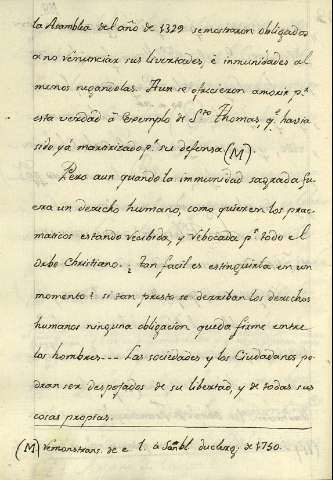 la Asamblea del año de 1329 se mostraron obligados
a no renunciar sus livertades, é inmunidades al
menos negandolas. Aun se ofrecieron a morir p.r
esta verdad á exemplo de S.to Thomas, q.e havia
sido yá martirizado p.r su defensa (M).
Pero aun quando la immunidad sagrada fu
era un derecho humano, como quieren los prac-
maticos estando recibida, y rebocada p.r todo el
Orbe Christiano. ¿tan facil es estinguirla en un
momento? si tan presto se derriban los derechos
humanos ninguna obligacion queda firme entre
los hombres--- Las sociedades y los Ciudadanos po
dran ser despojados de su libertad, y de todas sus
cosas propias.
(M) remonstrans. de e l. á du clerg. de 1750.